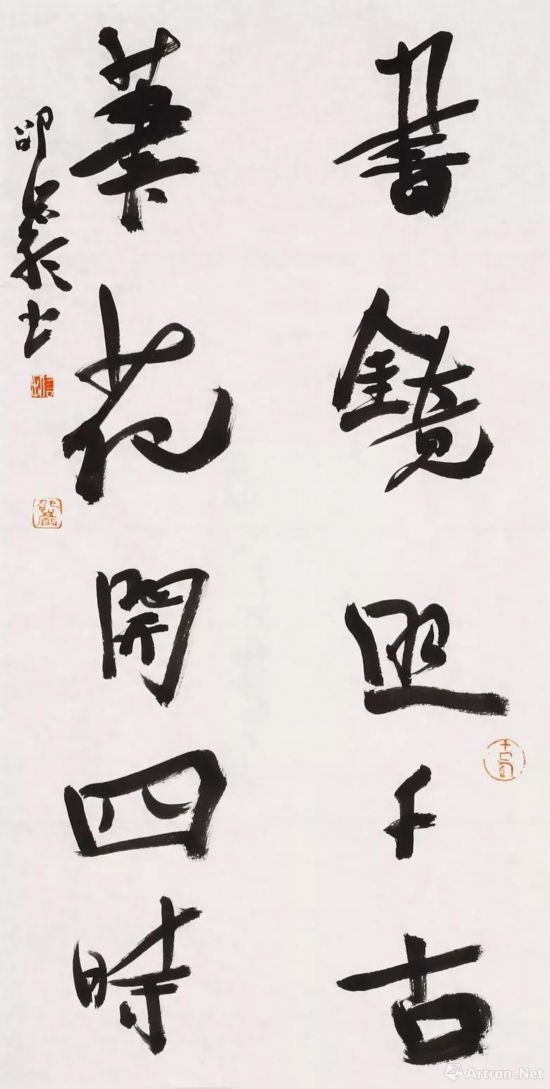 書鏡照千古
筆花開四時
邵秉仁書
Artron.Net